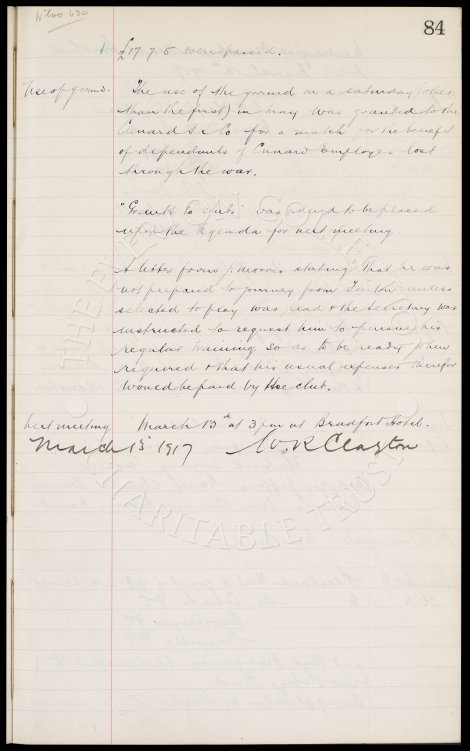 84
£17.7.5 were passed.
Use of ground. The use of the ground on a Saturday (other
than the first) in May was granted to the
Cunard S.S. Co for a match for the benefit
of dependants of Cunard Employes lost
through the war.
"Grants to clubs" was ordered to be placed
upon the Agenda for next meeting.
A letter from J. Morris stating that he was
not prepared to journey from unless
selected to play was read & the Secretary was
instructed to request him to pursue his
regular training so as to be ready when
required & that his usual expenses therefor
would be paid by the club.
Next meeting March 13th at 3 pm at Bradford Hotel.
March 13 1917 W. R Clayton
THE EVERTON COLLECTION
CHARITABLE TRUST